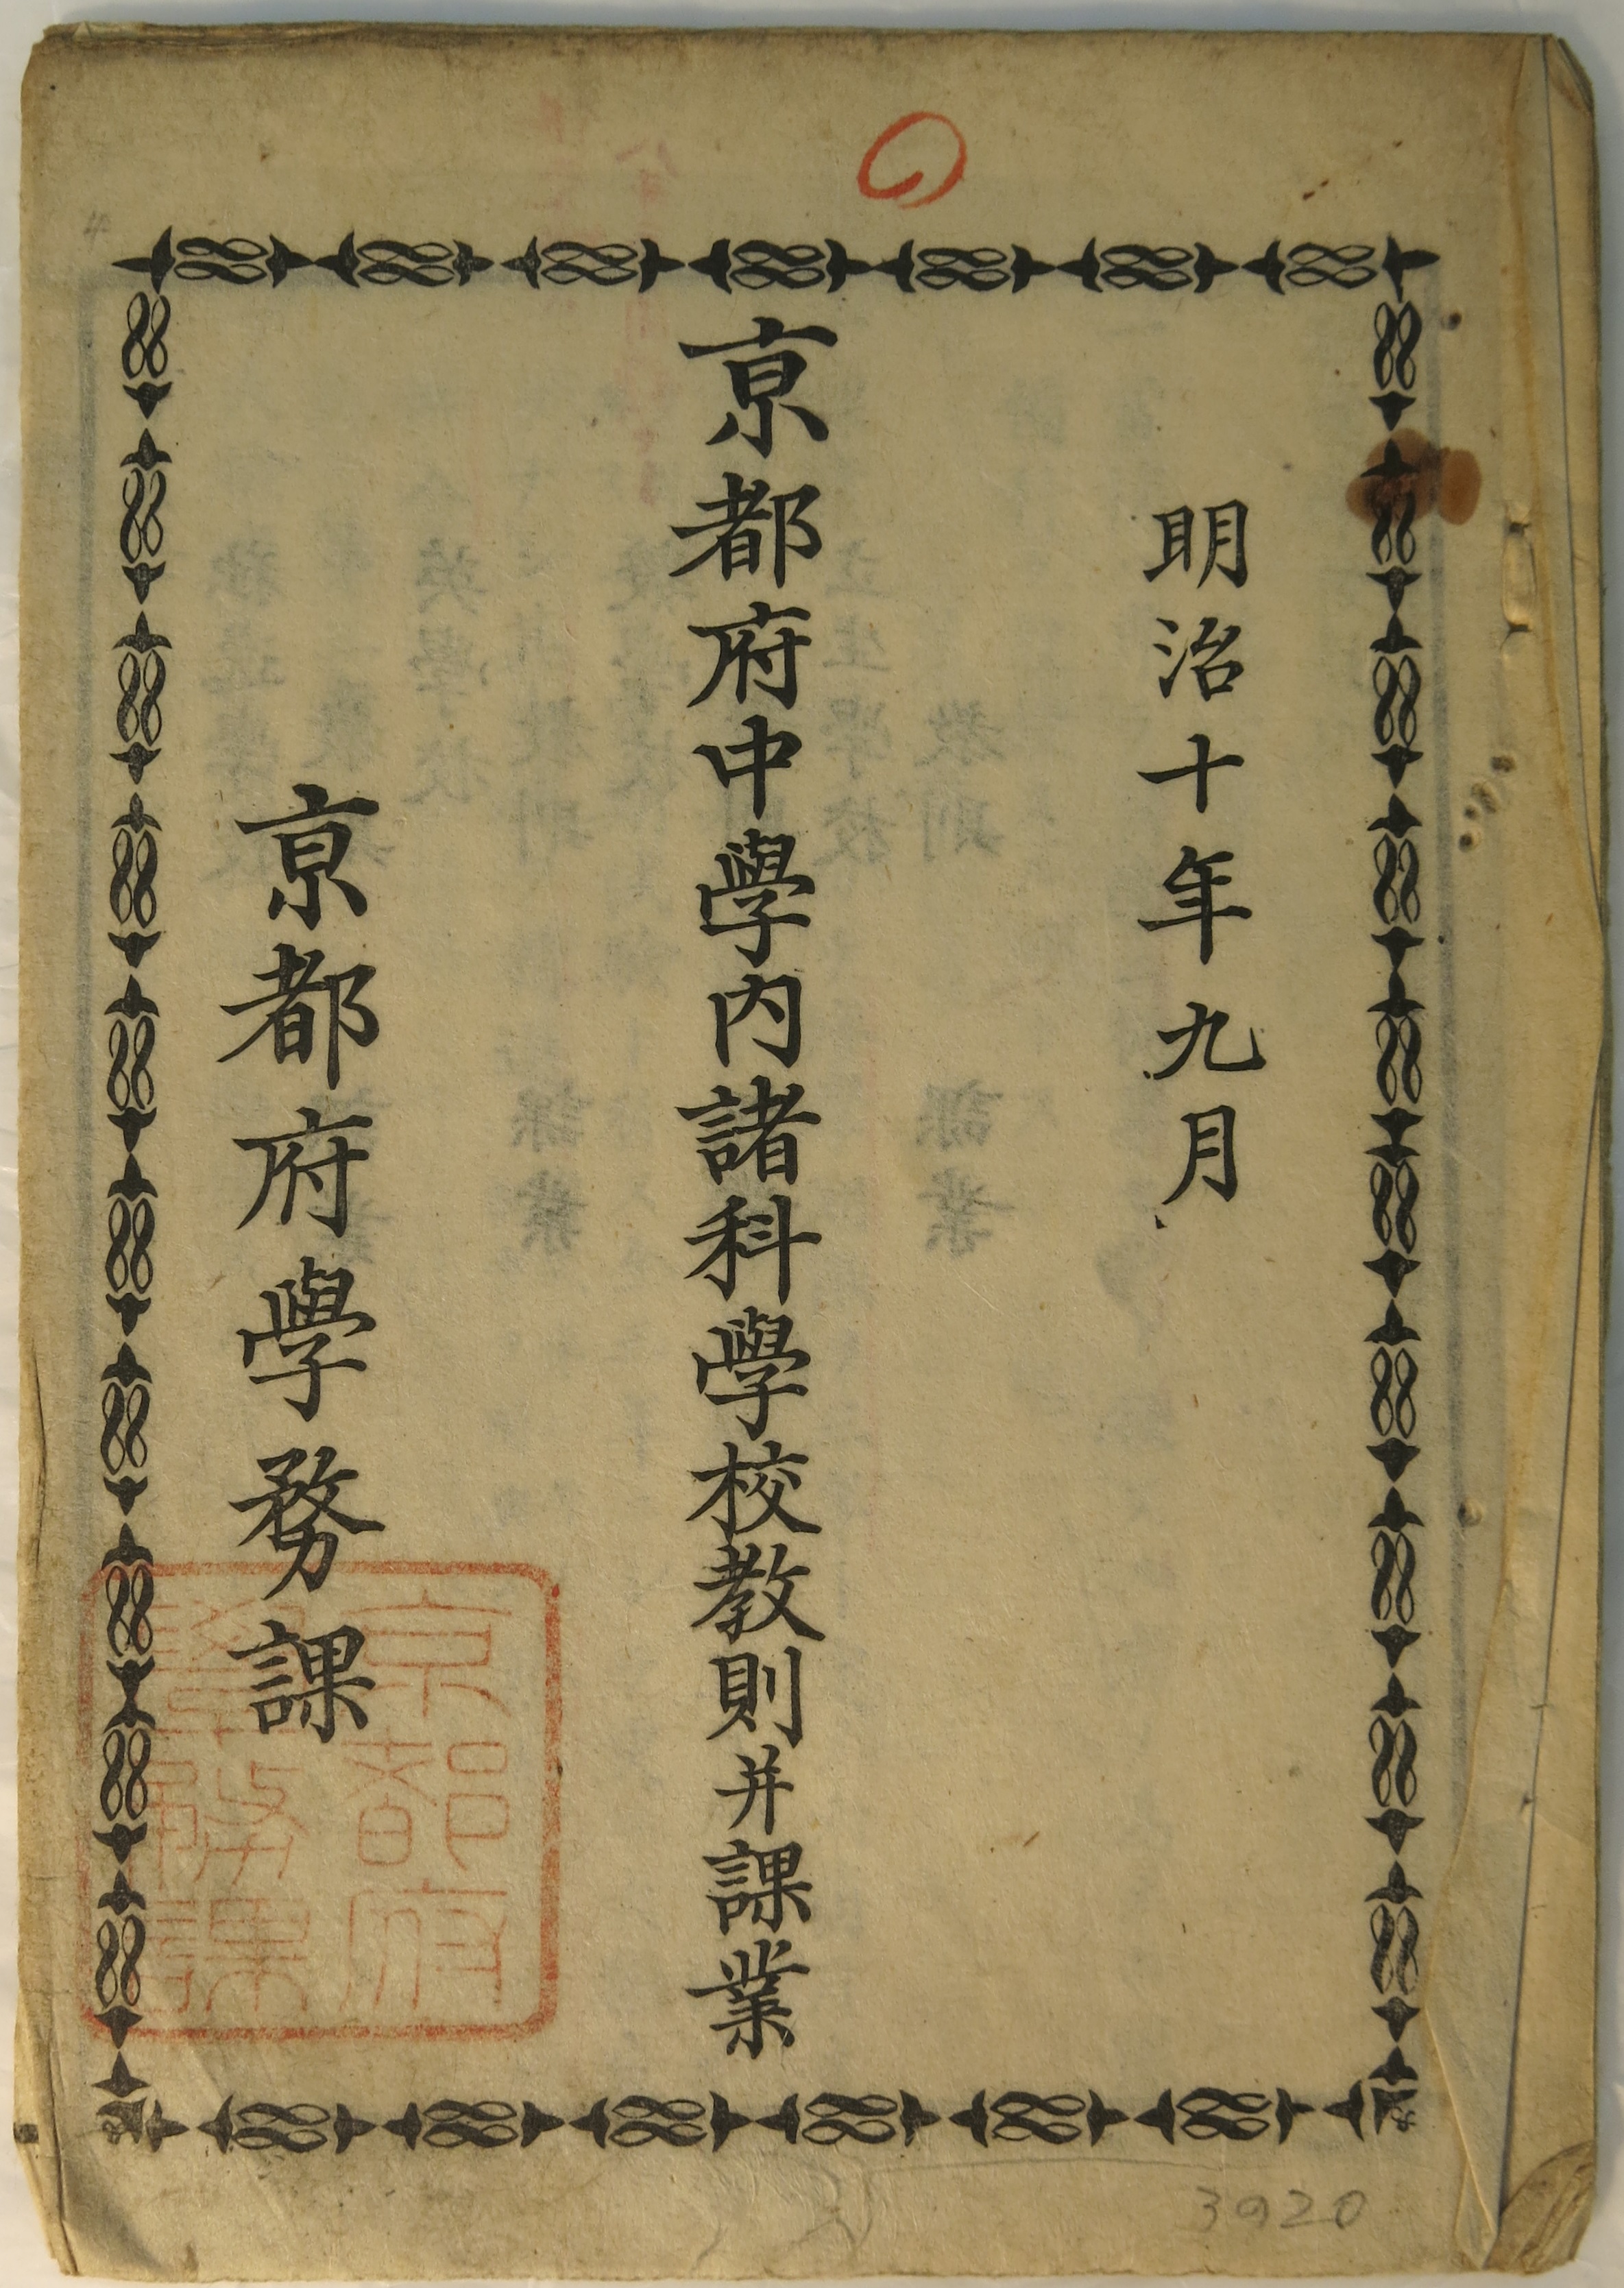 明治十年九月
京都府中學内諸科學校教則并課業
京都府學務課
京都府
學務課
3920